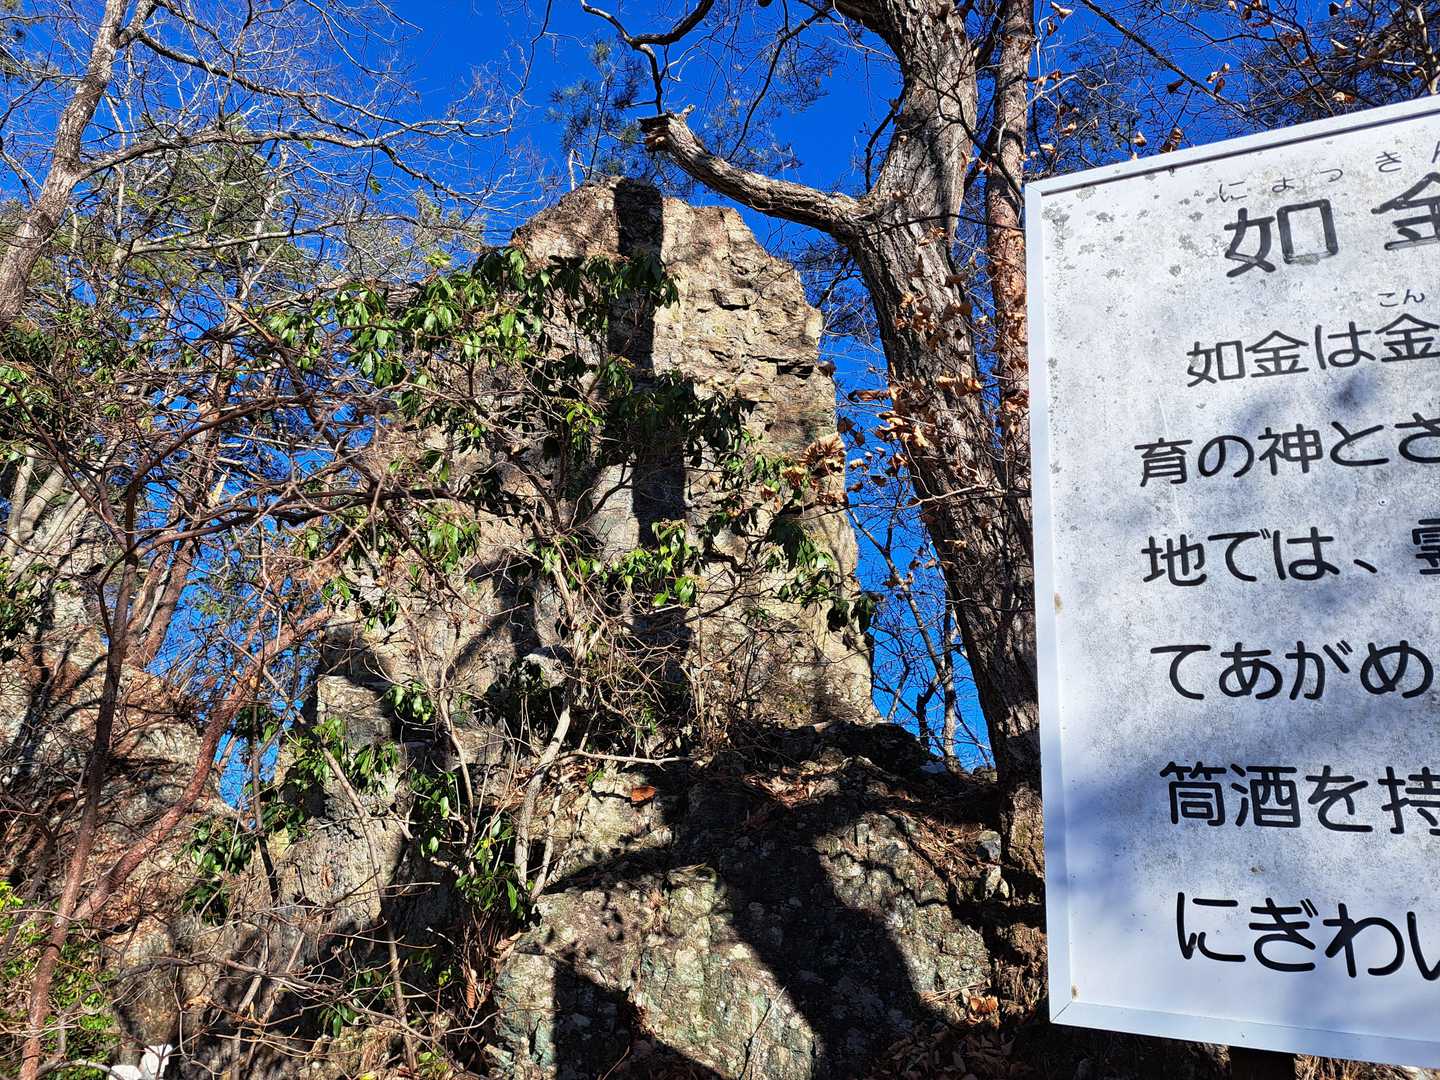 にょっき
如金
こん
如金は金
育の神とさ
地では、霊
てあがめ
筒酒を持
にぎわい